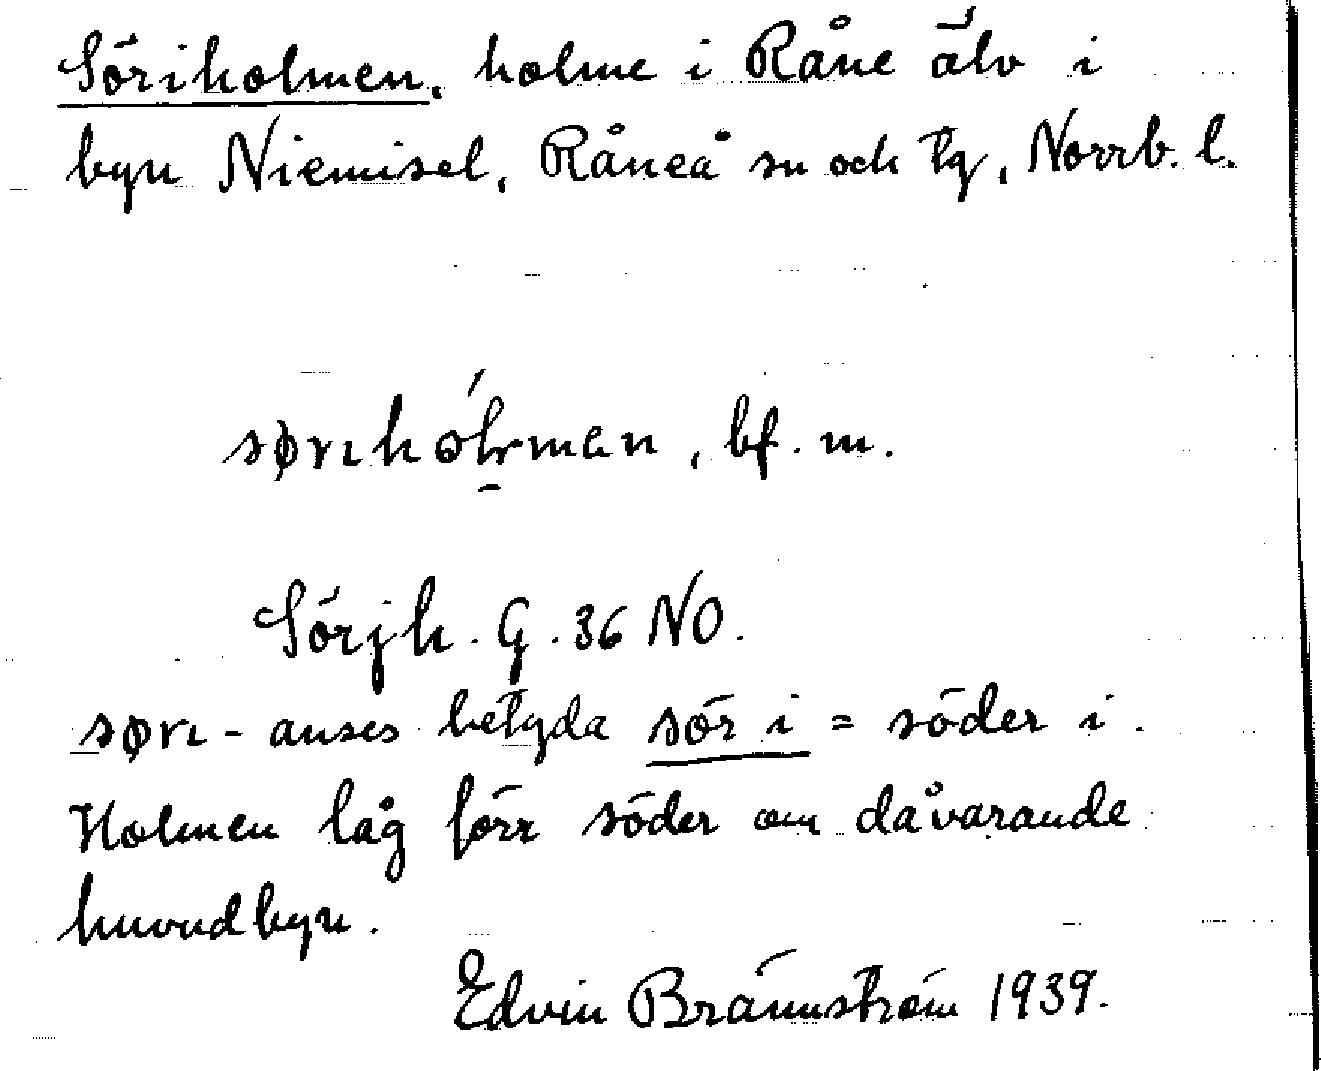 Söriholmen, holme i Råne älv i
byn Niemisel, Råneå sn och tg, Norrb. l.
bf. m.
Sörjh. G. 36 NO.
sørɩ- anses betyda sör i = söder i.
Holmen låg förr söder om dåvarande
huvudbyn.
Edvin Brännström 1939.